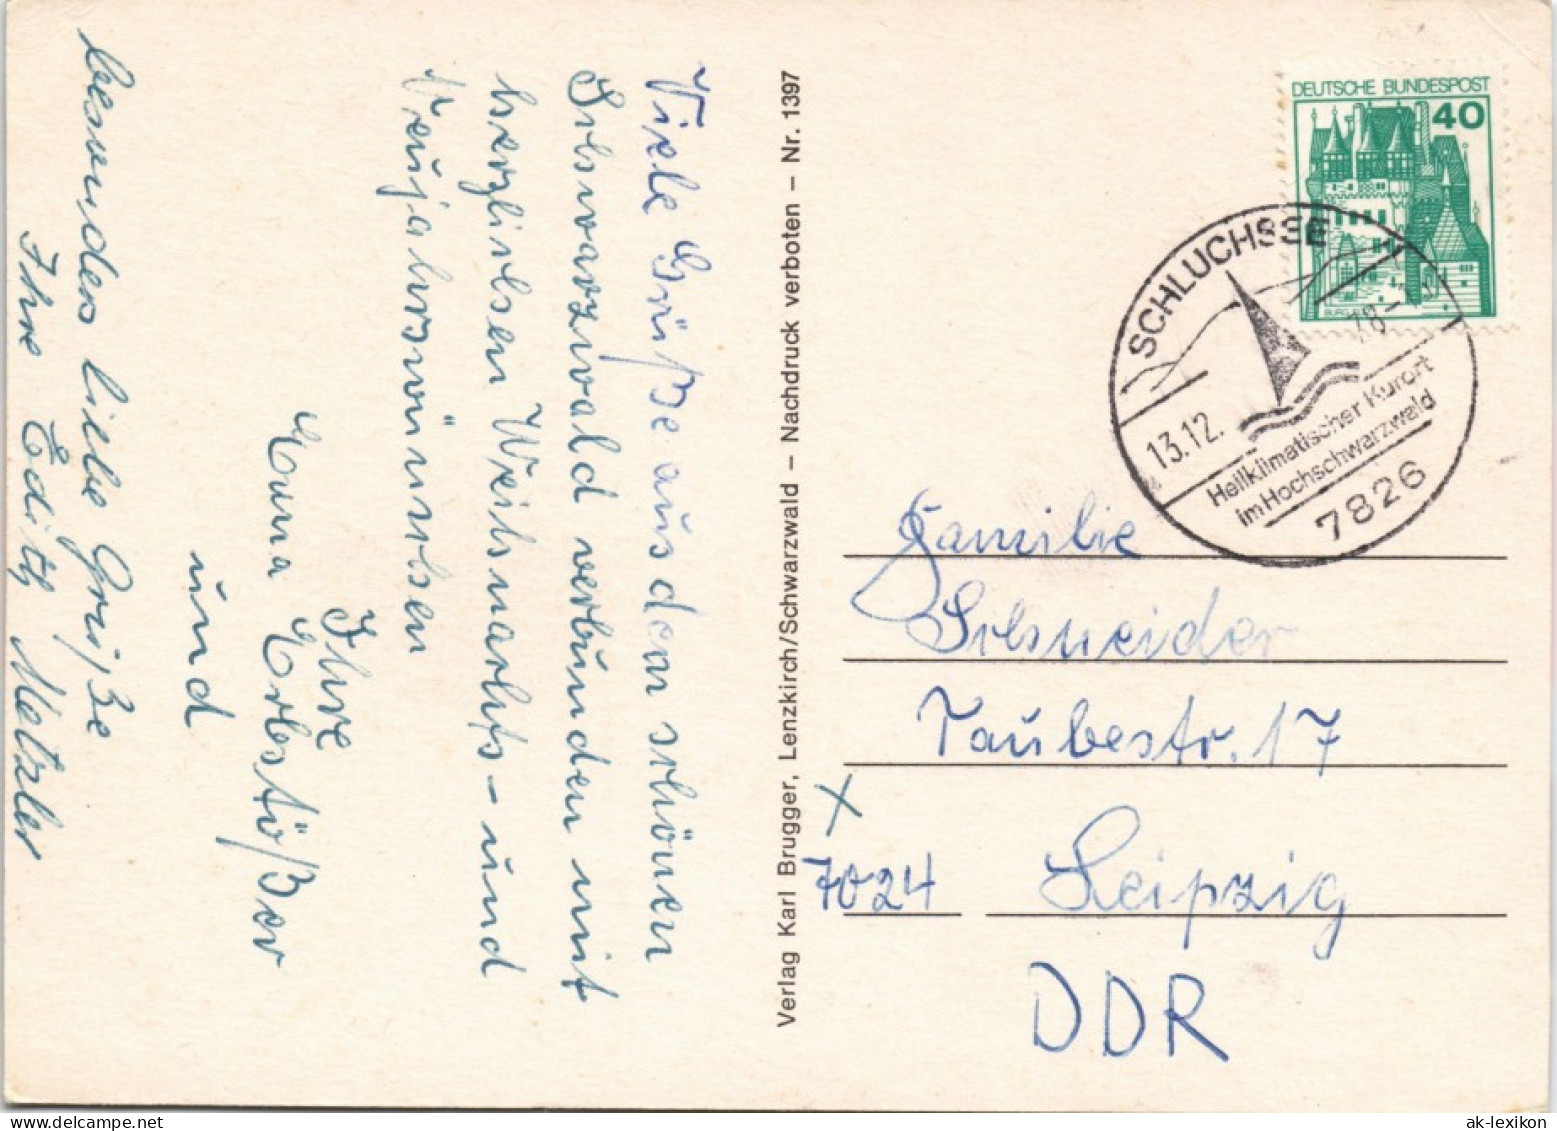 Viele Grüße aus dem schönen
Schwarzwald verbunden mit
herzlichen Weihnachts- und
Neujahrswünschen
Ihre
und
besonders liebe Grüße
Ihre Edith Metzler
Verlag Karl Brugger, Lenzkirch/Schwarzwald – Nachdruck verboten – Nr. 1397
DEUTSCHE BUNDESPOST
40
SCHLUCHSEE
13.12.
Heilklimatischer Kurort
im Hochschwarzwald
7826
Familie
Schneider
Taubestr. 17
X
7024 Leipzig
DDR
ak-lexikon